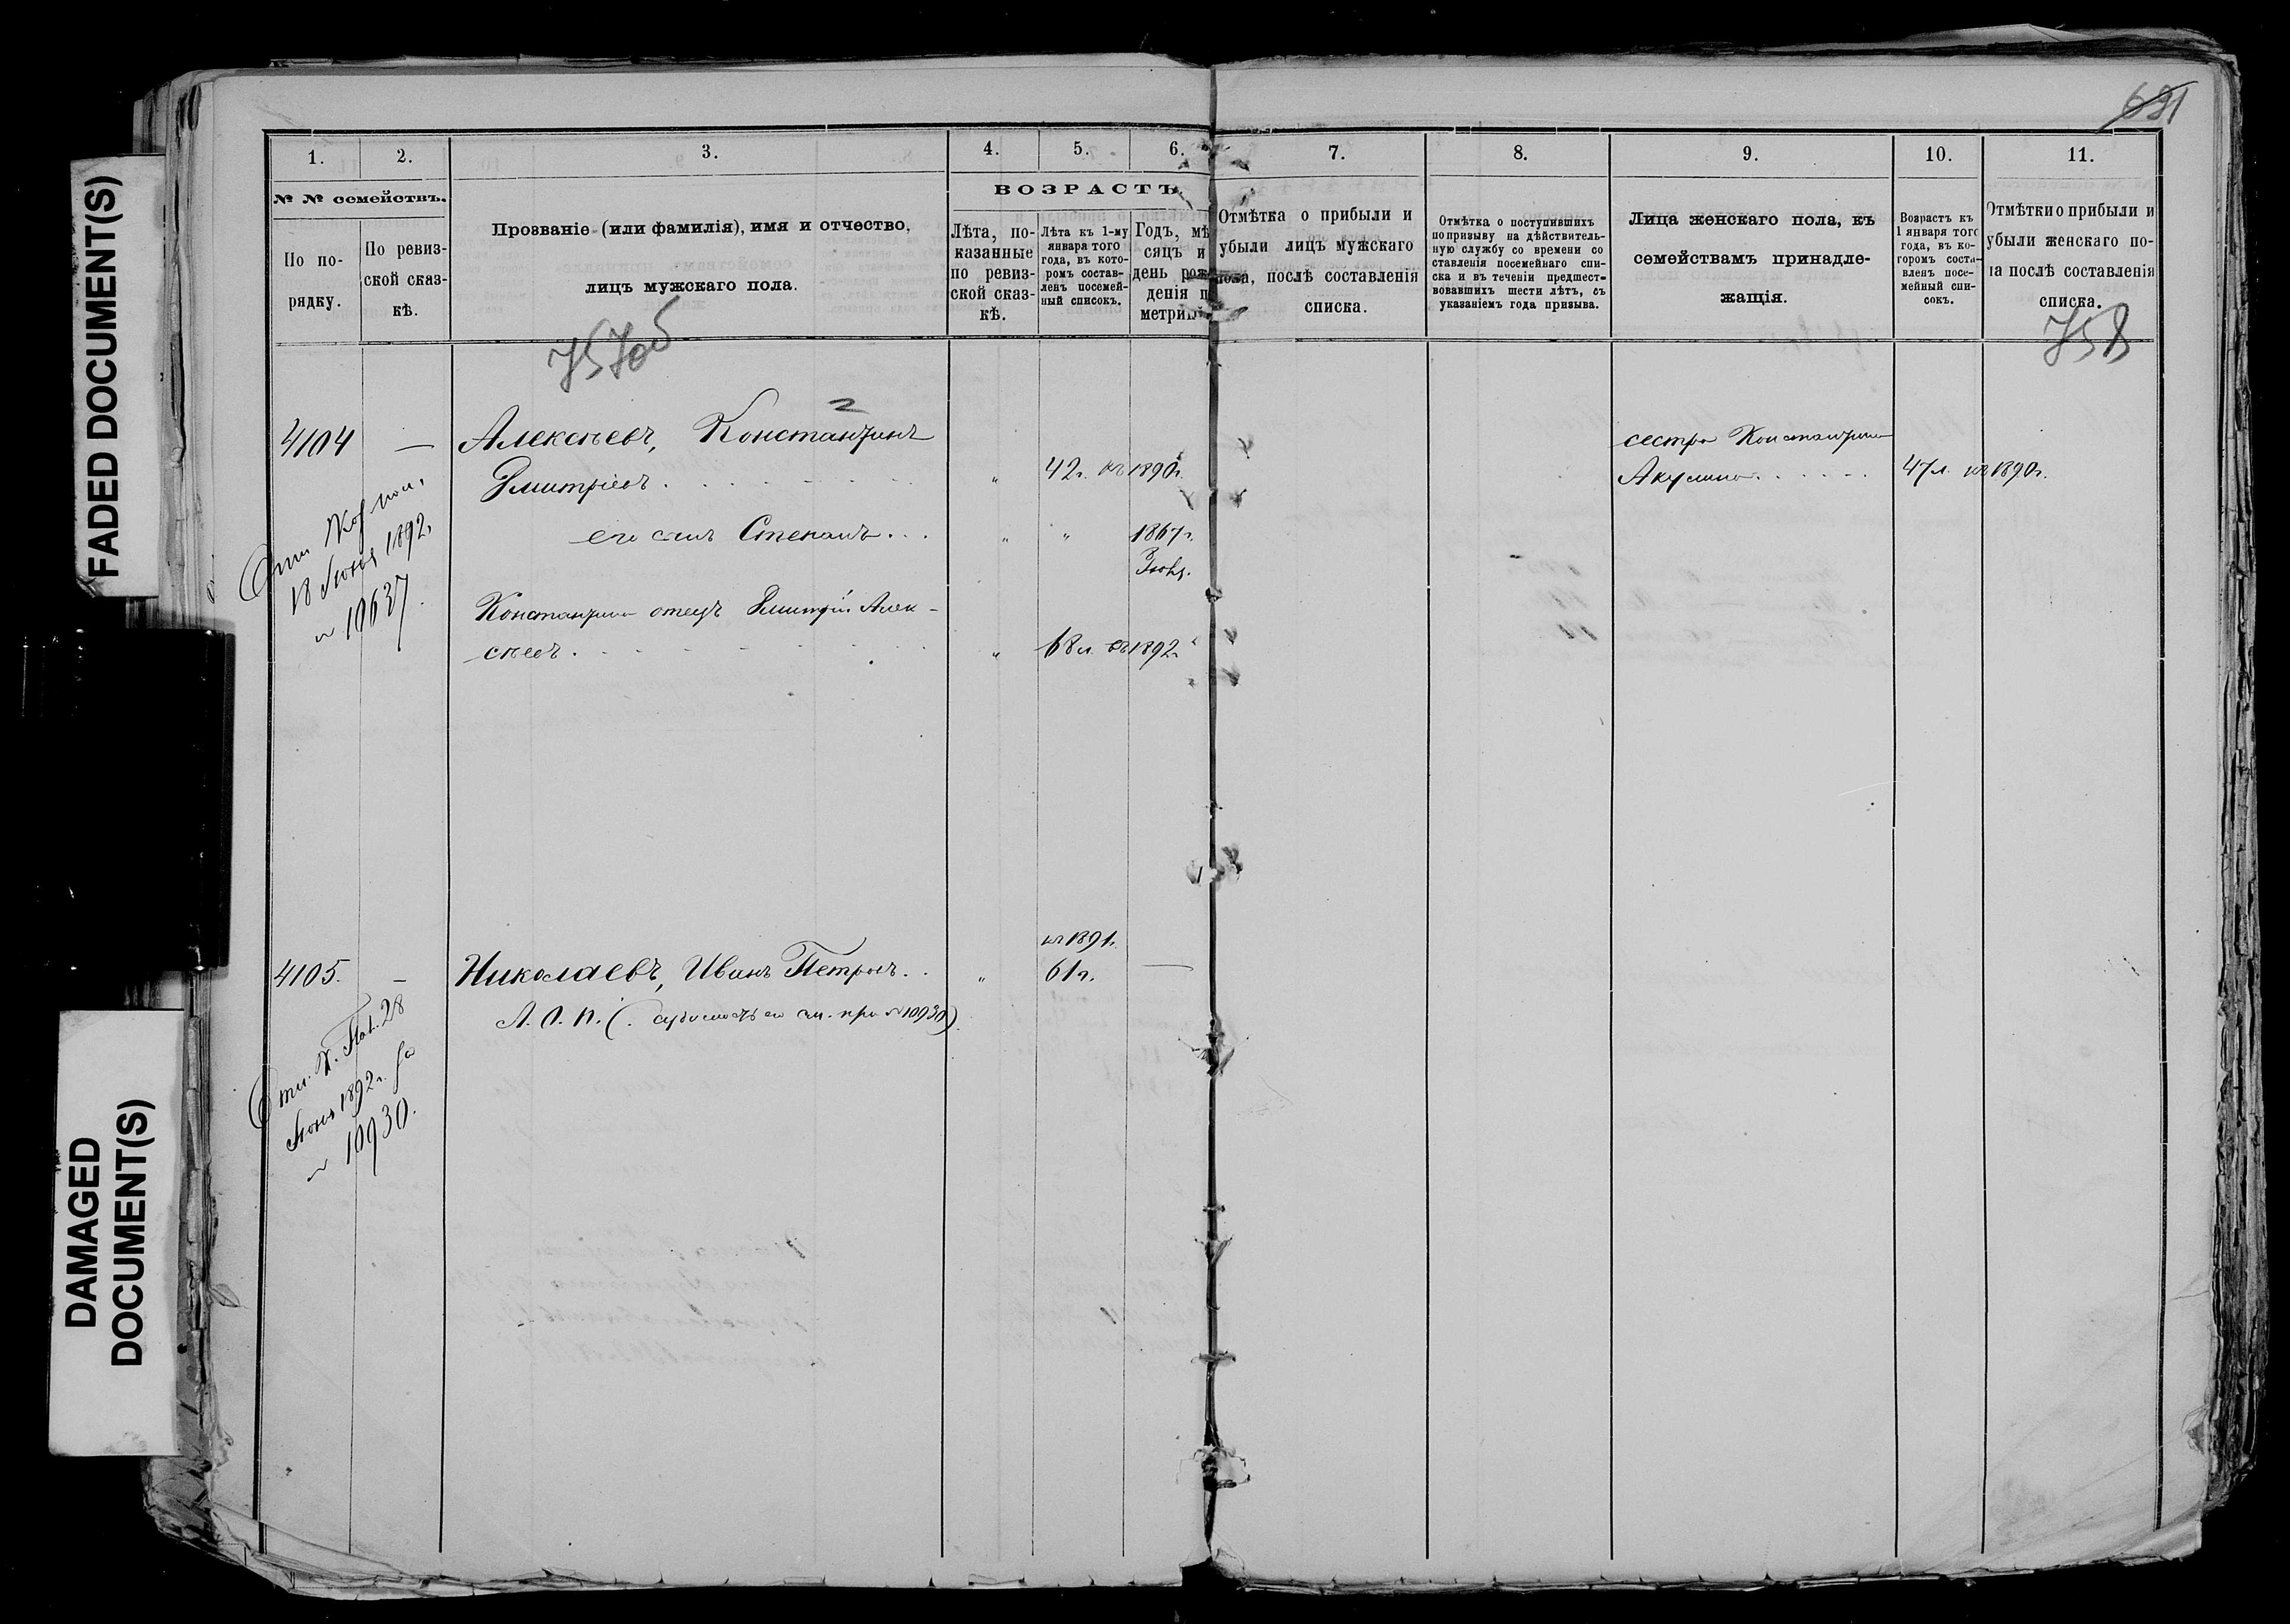 FADED DOCUMENT(S)
DAMAGED
DOCUMENT(S)
691
1.
2.
3.
4.
5.
6.
7.
8.
9.
10.
11.
№ № семействъ.
По по-
рядку.
По ревиз-
ской сказ-
кѣ.
Прозваніе (или фамилія), имя и отчество,
лицъ мужскаго пола.
ВОЗРАСТЪ
Лѣта, по-
казанные
по ревиз-
ской сказ-
кѣ.
Лѣта къ 1-му
января того
года, въ кото-
ромъ состав-
ленъ посемей-
ный списокъ.
Годъ, мѣ
сяцъ и
день рож
денія п
метрик
Отмѣтка о прибыли и
убыли лицъ мужскаго
пола, послѣ составленія
списка.
Отмѣтка о поступившихъ
по призыву на дѣйствитель-
ную службу со времени со
ставленія посемейнаго спи-
ска и въ теченіи предшест-
вовавшихъ шести лѣтъ, съ
указаніемъ года призыва.
Лица женскаго пола, къ
семействамъ принадле-
жащія.
Возрастъ къ
1 января того
года, въ ко-
горомъ соста-
вленъ посе-
мейный спи-
сокъ.
Отмѣтки о прибыли и
убыли женскаго по-
ла послѣ составленія
списка.
757об
758
4104 — Алексѣевъ, Константинъ
2
Дмитріевъ . . . . " 42г. къ 1890г.
его сынъ Степанъ . . . " " 1867г.
Константина отецъ Дмитрій Алек-
сѣевъ . . . . " 68л. къ 1892г.
сестра Константина
Акулина . . . . . 47л. къ 1890г.
18 Іюня 1892г.
№ 10637.
къ 1891г.
4105. — Николаевъ, Иванъ Петровъ . . " 61г. —
см. при № 10930).
28
Іюня 1892г. за
№ 10930.